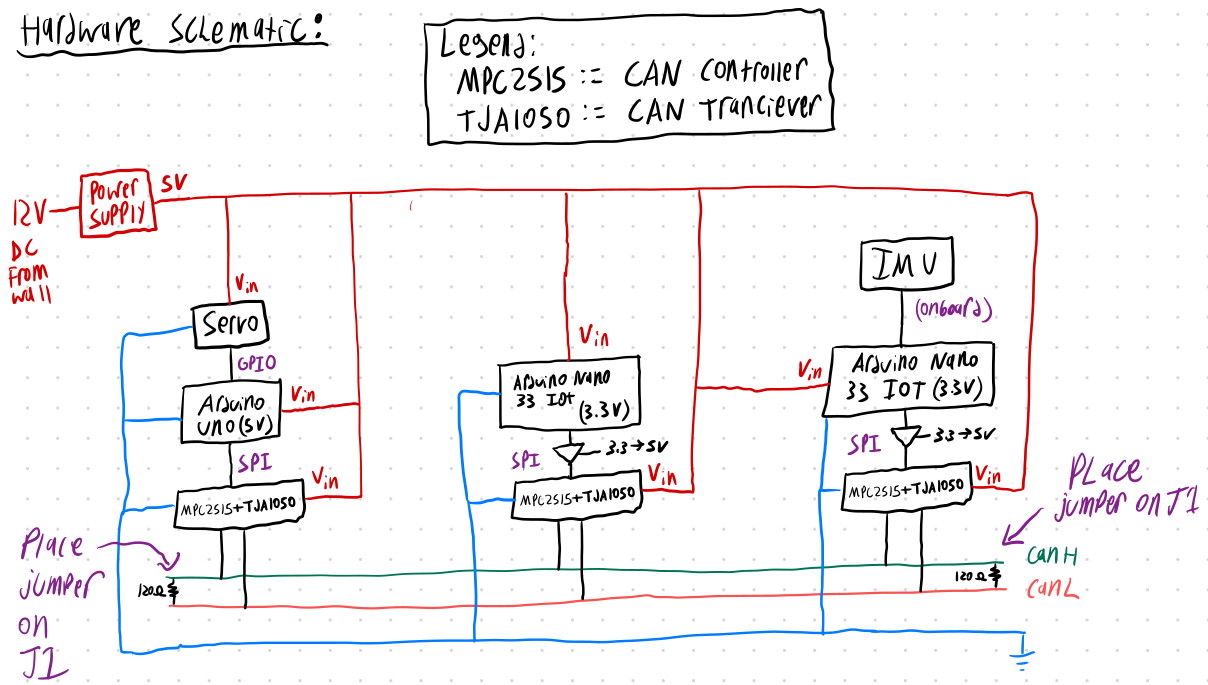 Hardware Schematic:
Legend:
MPC2515 := CAN Controller
TJA1050 := CAN Tranciever
Power
Supply
5V
12V
DC
From
wall
Vin
Servo
GPIO
Arduino
UNO (5V)
Vin
SPI
Vin
MPC2515+TJA1050
Vin
Arduino Nano
33 IOT
(3.3V)
SPI
3.3→5V
Vin
MPC2515+TJA1050
IMU
(onboard)
Vin
Arduino Nano
33 IOT (3.3V)
SPI
3.3→5V
Vin
MPC2515+TJA1050
Place
jumper
on
J1
120Ω
Place
jumper on J1
120Ω
CanH
CanL